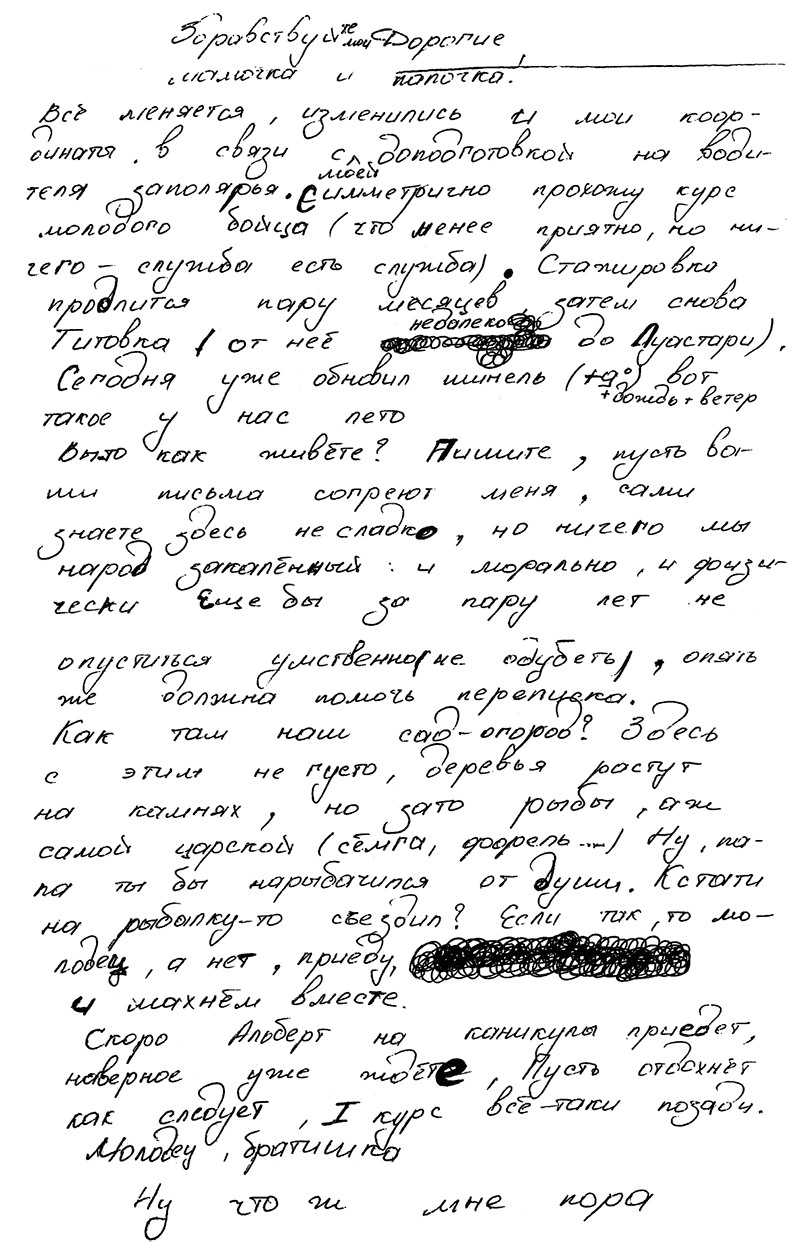 Здравствуйте мои Дорогие,
мамочка и папочка.
Всё меняется, изменились и мои коор-
динаты, в связи с моей доподготовкой на води-
теля заполярья. Симметрично прохожу курс
молодого бойца (что менее приятно, но ни-
чего - служба есть служба). Стажировка
продлится пару месяцев, затем снова
Титовка (от неё недалеко до Луастари).
Сегодня уже обновил шинель (+9°) вот
+дождь+ветер
такое у нас лето
Вы-то как живёте? Пишите, пусть ва-
ши письма согреют меня, сами
знаете здесь не сладко, но ничего мы
народ закалённый: и морально, и физи-
чески Еще бы за пару лет не
опуститься умственно (не одубеть), опять
же должна помочь переписка.
Как там наш сад-огород? Здесь
с этим не густо, деревья растут
на камнях, но зато рыбы, аж
самой царской (сёмга, форель...) Ну, па-
па ты бы нарыбачился от души. Кстати
на рыбалку-то съездил? Если так, то мо-
лодец, а нет, приеду,
и махнём вместе.
Скоро Альберт на каникулы приедет,
наверное уже ждёте, Пусть отдохнёт
как следует, I курс всё-таки позади.
Молодец, братишка
Ну что ж мне пора